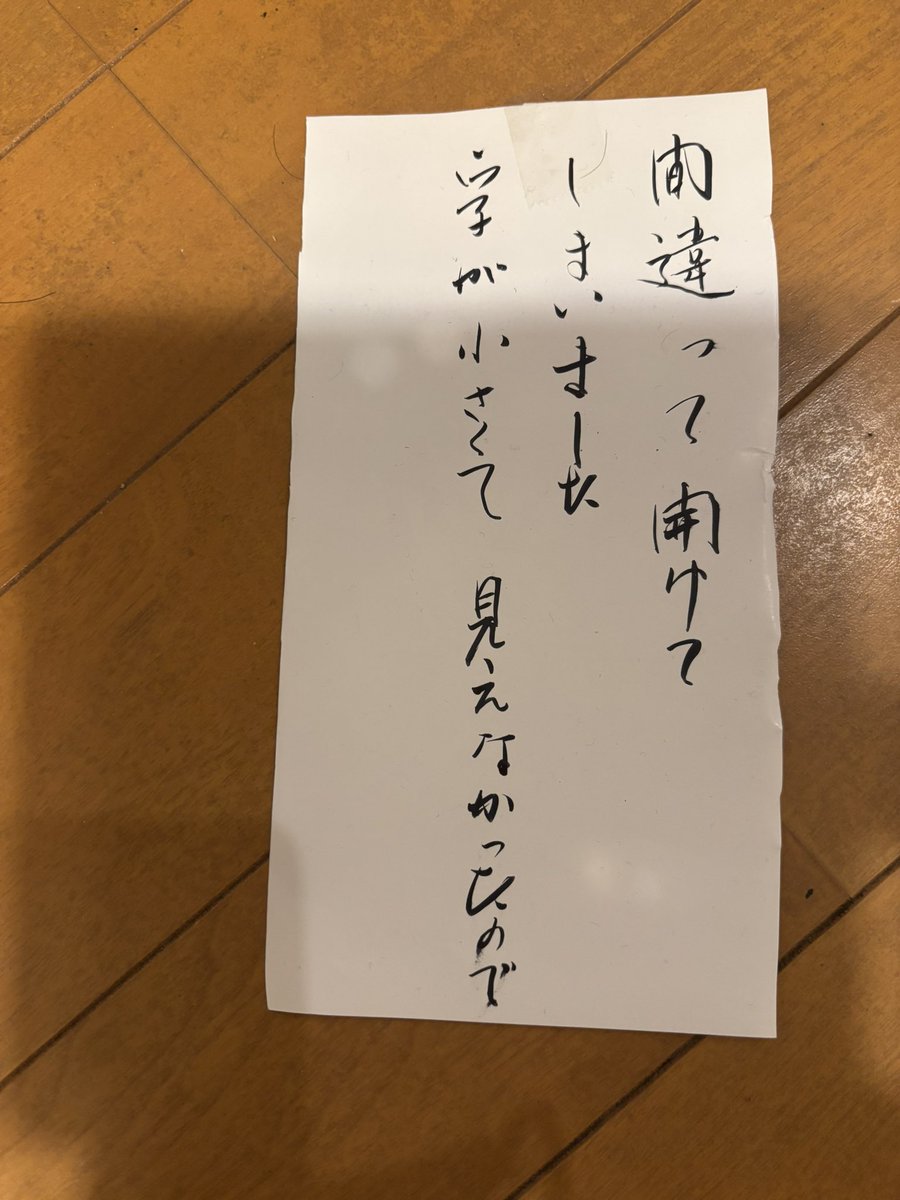 間違って開けて
しまいました
字が小さくて見えなかったので